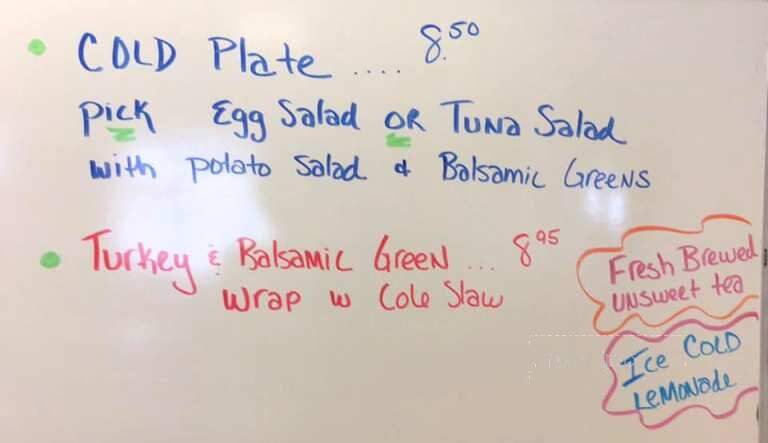 COLD Plate .... 8.50
Pick Egg Salad OR Tuna Salad
with potato Salad & Balsamic Greens
Turkey & Balsamic Green ... 8 95
Wrap w Cole Slaw
Fresh Brewed
unsweet tea
Ice Cold
Lemonade